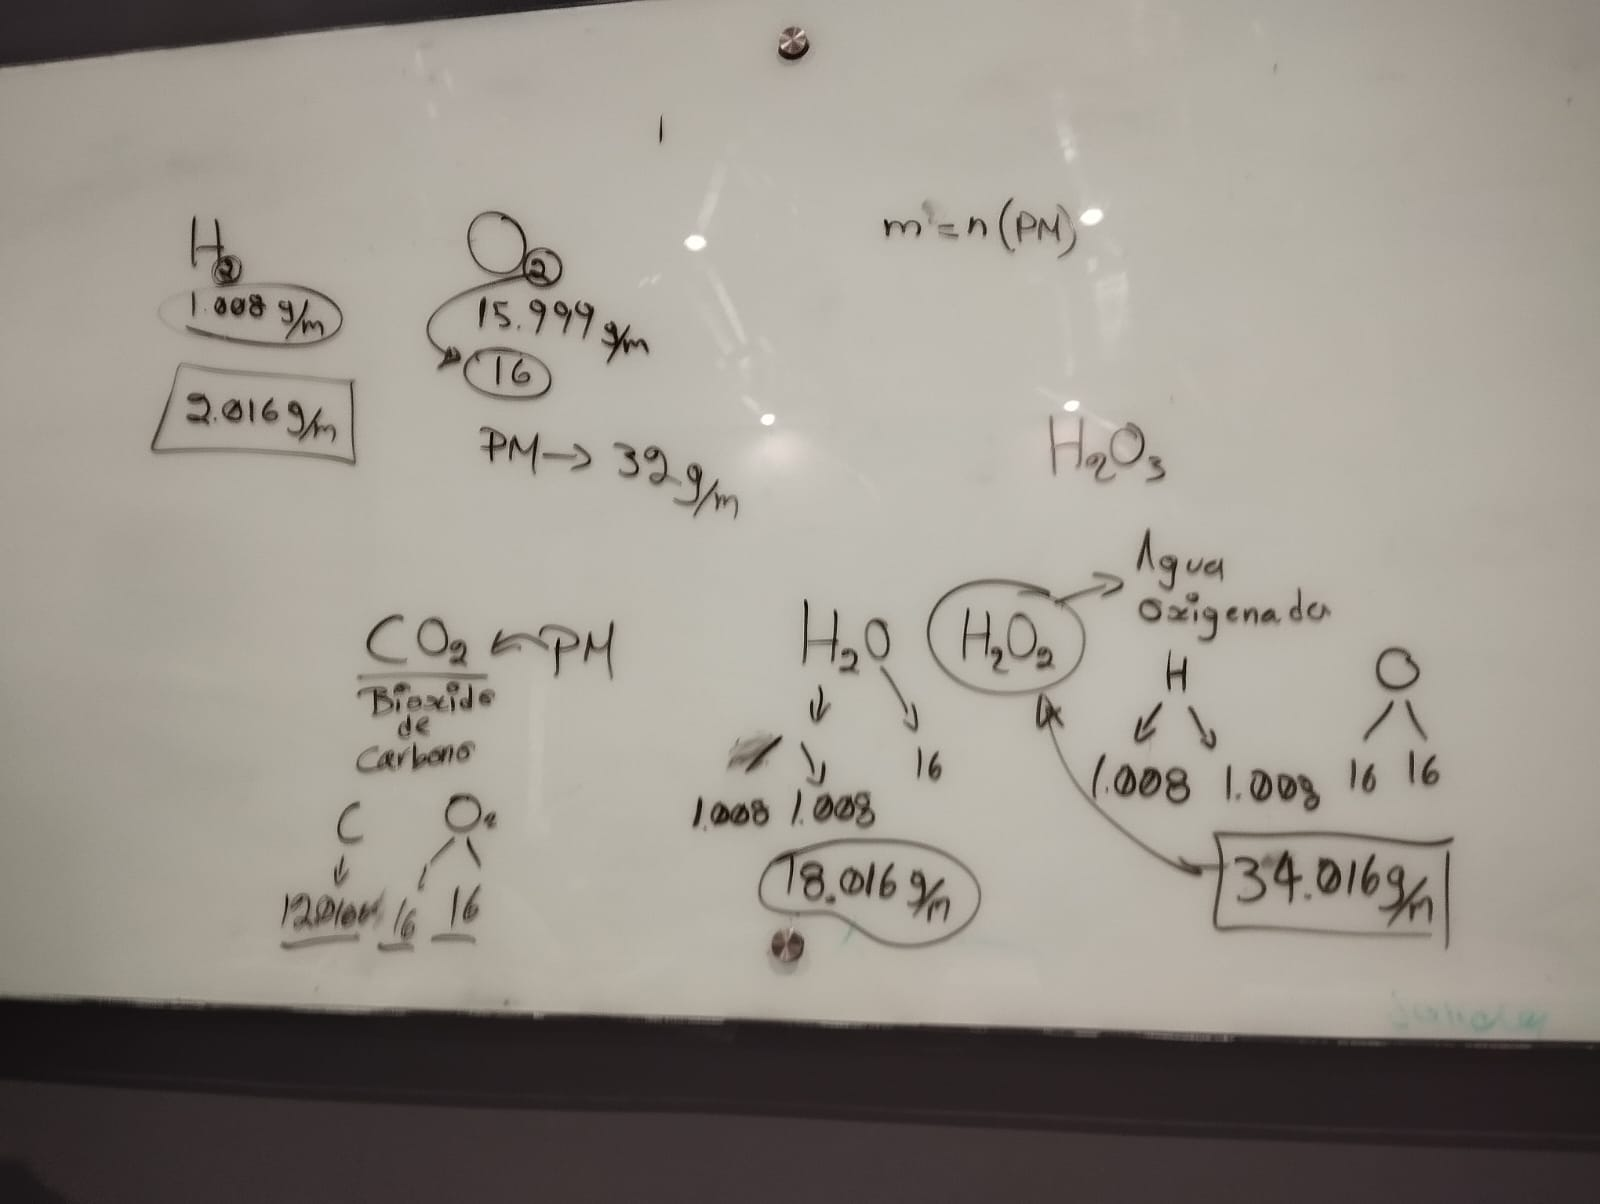 H₂
1.008 g/m
2.016 g/m
O₂
15.999 g/m
16
PM → 32 g/m
m = n (PM)
H₂O₃
CO₂ ← PM
Bioxido
de
Carbono
C O₂
16 16
H₂O
16
1.008 1.008
18.016 g/m
H₂O₂ → Agua
Oxigenada
H O
1.008 1.008 16 16
34.016 g/m